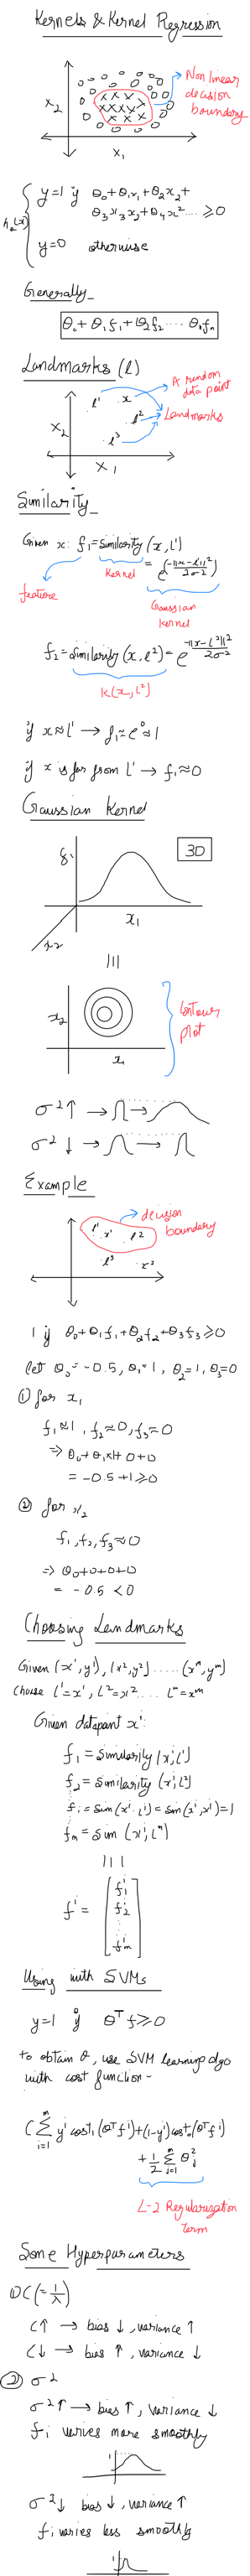 Kernels & Kernel Regression
Non linear
decision
boundary
x₂
x₁
hθ(x)
y=1 if θ₀+θ₁x₁+θ₂x₂+
θ₃x₁x₂+θ₄x².... ≥0
y=0 otherwise
Generally_
θ₀+θ₁f₁+θ₂f₂ .... θₙfₙ
Landmarks (l)
l¹ x
A random
data point
l²
Landmarks
x₂
l³
x₁
Similarity_
Given x: f₁=similarity(x, l¹)
Kernel
= e^(-||x-l¹||²/2σ²)
feature
Gaussian
kernel
f₂=similarity(x, l²)= e^(-||x-l²||²/2σ²)
K(x, l²)
if x≈l¹ → f₁≈e⁰≈1
if x is far from l¹ → f₁≈0
Gaussian Kernel
f₁
3D
x₁
x₂
|||
x₂
x₁
Contour
plot
σ²↑ → →
σ²↓ → →
Example
decision
boundary
l¹ x¹ l²
l³ x²
1 if θ₀+θ₁f₁+θ₂f₂+θ₃f₃≥0
let θ₀=-0.5, θ₁=1, θ₂=1, θ₃=0
① for x₁
f₁≈1, f₂≈0, f₃≈0
⇒ θ₀+θ₁×1+0+0
= -0.5+1≥0
② for x₂
f₁,f₂,f₃≈0
⇒ θ₀+0+0+0
= -0.5 <0
Choosing Landmarks
Given (x¹,y¹), (x²,y²) ..... (xᵐ,yᵐ)
Choose l¹=x¹, l²=x² .... lᵐ=xᵐ
Given datapoint xⁱ:
f₁ = similarity(xⁱ,l¹)
f₂ = similarity (xⁱ,l²)
fᵢ=sim(xⁱ,lⁱ)=sim(xⁱ,xⁱ)=1
fₘ=sim (xⁱ,lᵐ)
|||
fⁱ = [f₁ⁱ
f₂ⁱ
⋮
fₘⁱ]
Using with SVMs
y=1 if θᵀf≥0
to obtain θ, use SVM learning algo
with cost function-
C∑ᵢ₌₁ᵐ yⁱcost₁(θᵀfⁱ)+(1-yⁱ)cost₀(θᵀfⁱ)
+1/2 ∑ⱼ₌₁ᵐ θⱼ²
L-2 Regularization
term
Some Hyperparameters
① C(=1/λ)
C↑ → bias ↓, variance ↑
C↓ → bias ↑, variance ↓
② σ²
σ²↑ → bias ↑, variance ↓
fᵢ varies more smoothly
1
σ²↓ bias ↓, variance ↑
fᵢ varies less smoothly
1